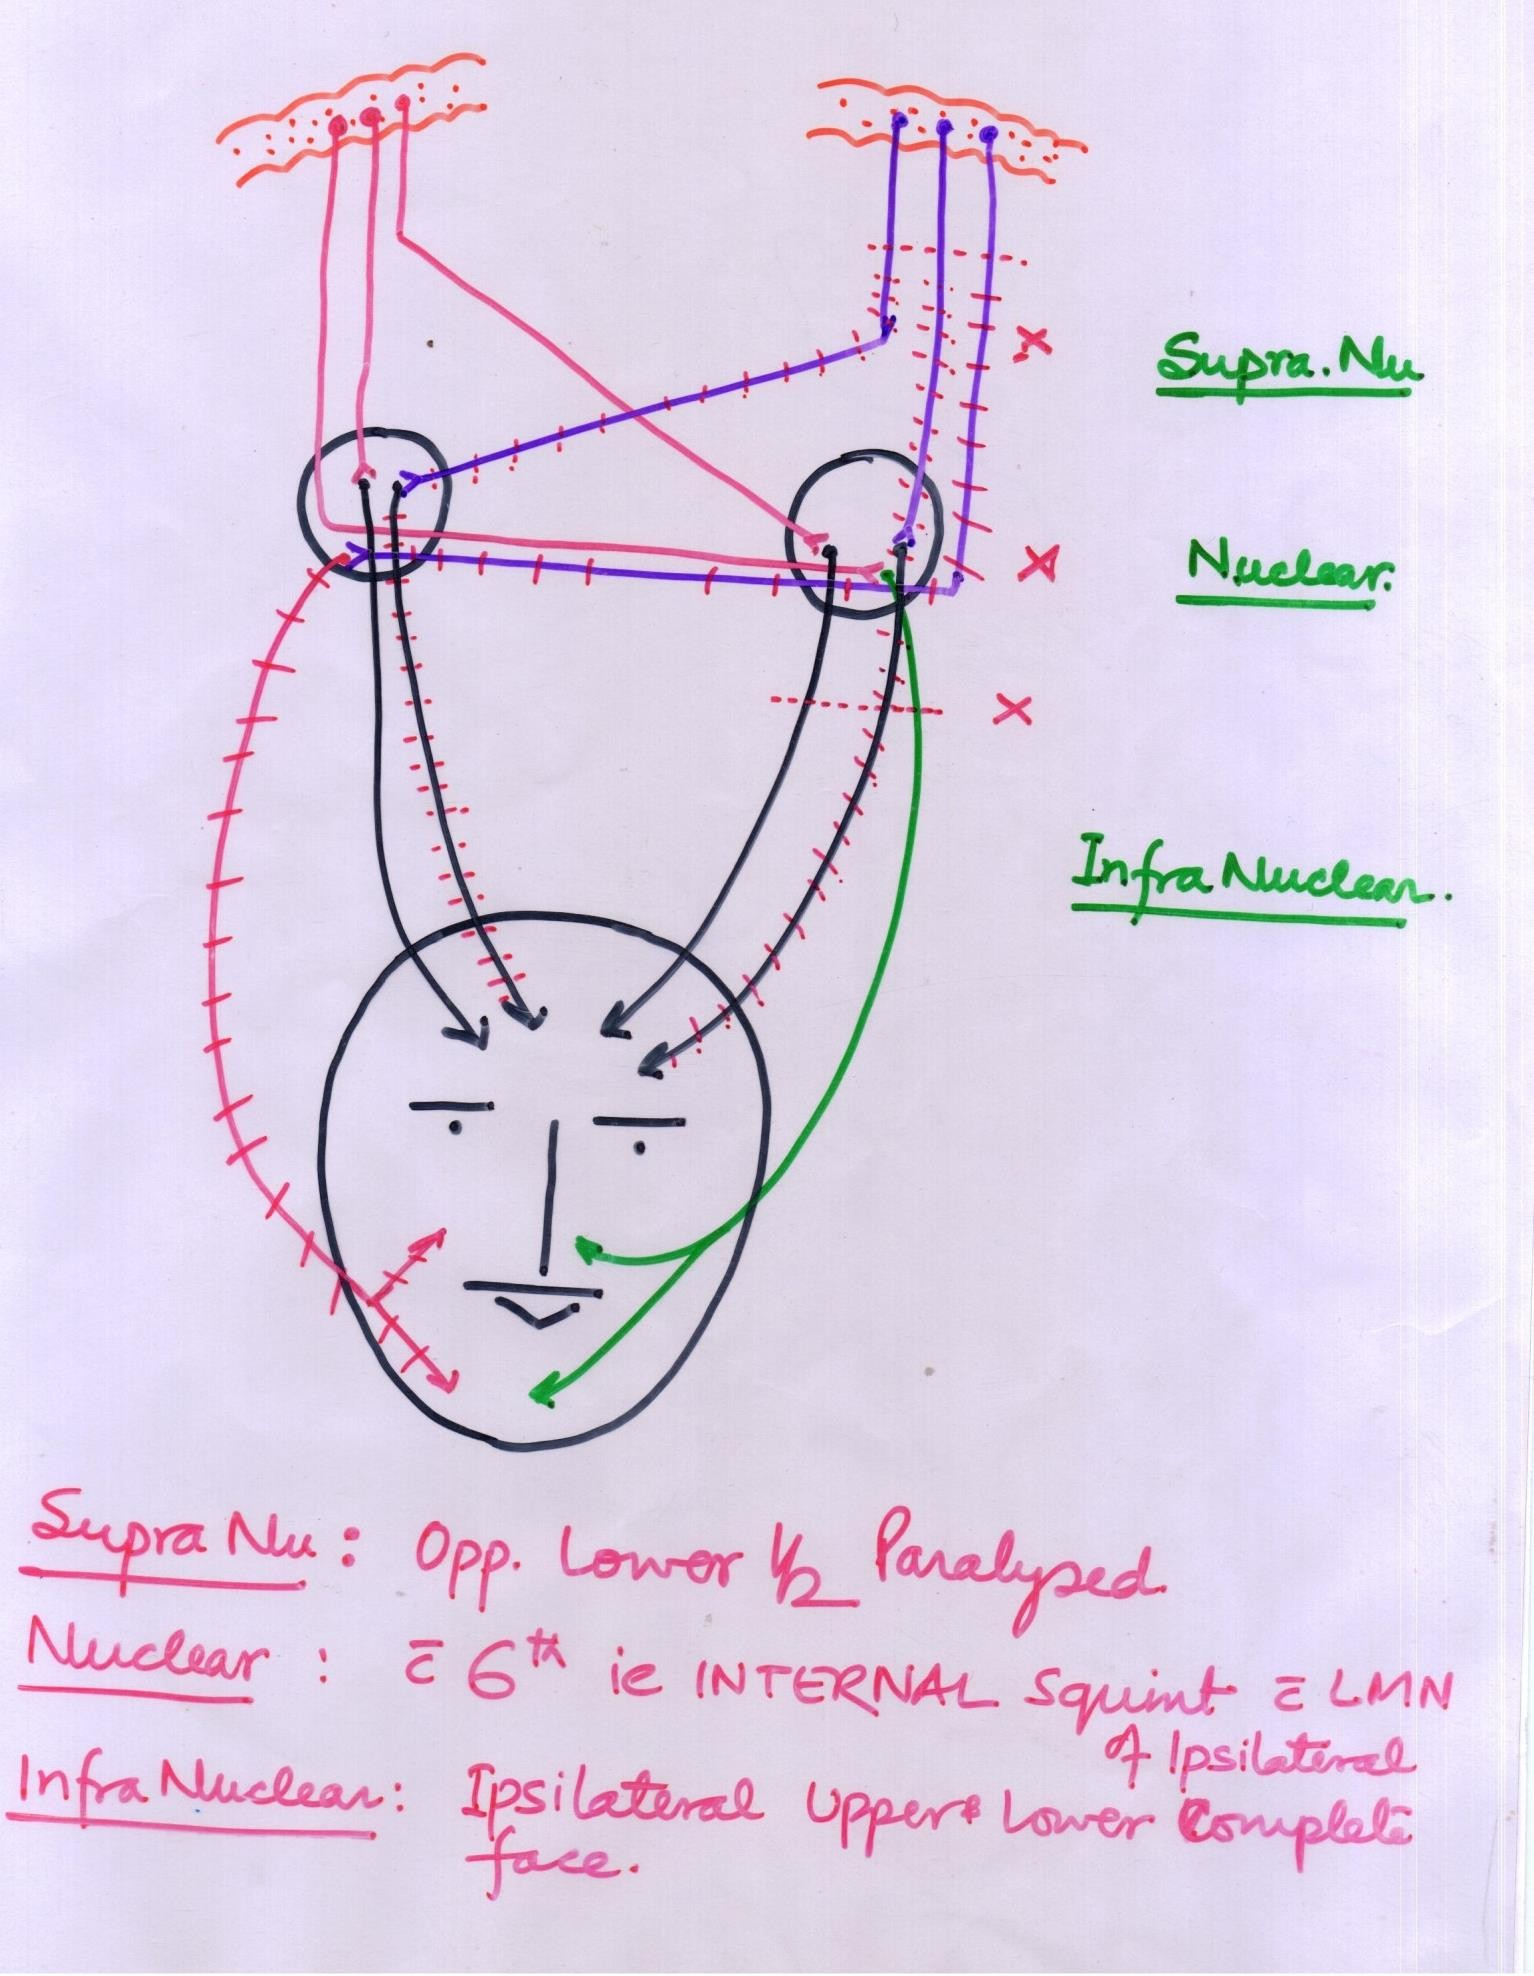 Supra. Nu
Nuclear.
Infra Nuclear.
Supra Nu : Opp. Lower 1/2 Paralysed.
Nuclear : c̄ 6th ie INTERNAL Squint c̄ LMN
of Ipsilateral
Infra Nuclear : Ipsilateral Upper & Lower Complete
face.